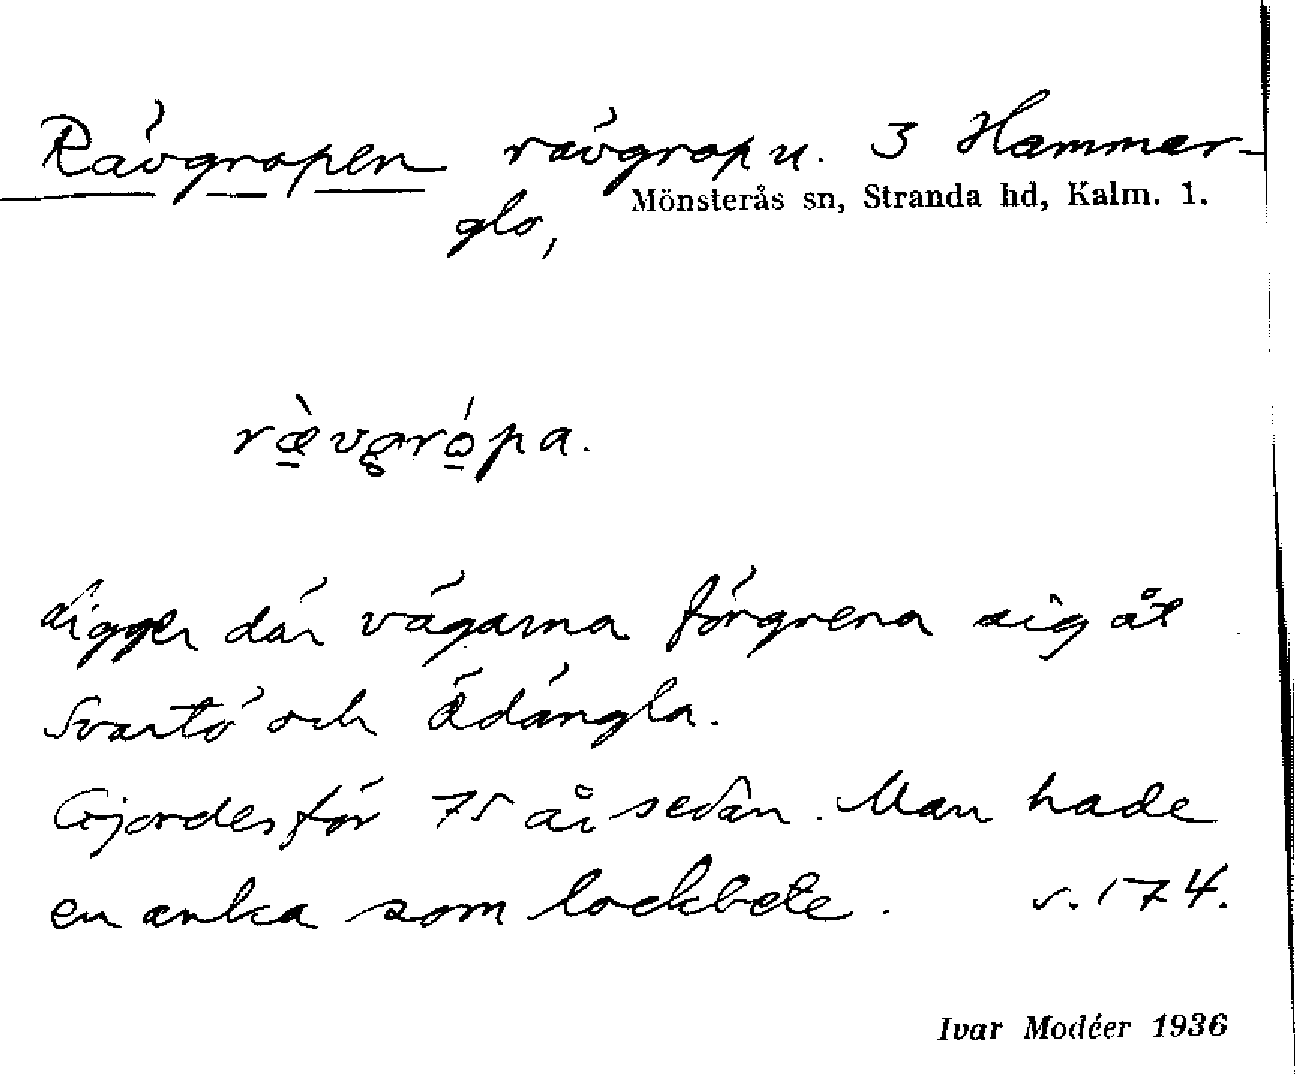 Rävgropen rävgrop u. 3 Hammar-
glo, Mönsterås sn, Stranda hd, Kalm. 1.
ræ̀vgrópa.
Ligger där vägarna förgrena sig åt
Svartö och Ädängla.
Gjordes för 75 år sedan. Man hade
en anka som lockbete. s. 174.
Ivar Modéer 1936